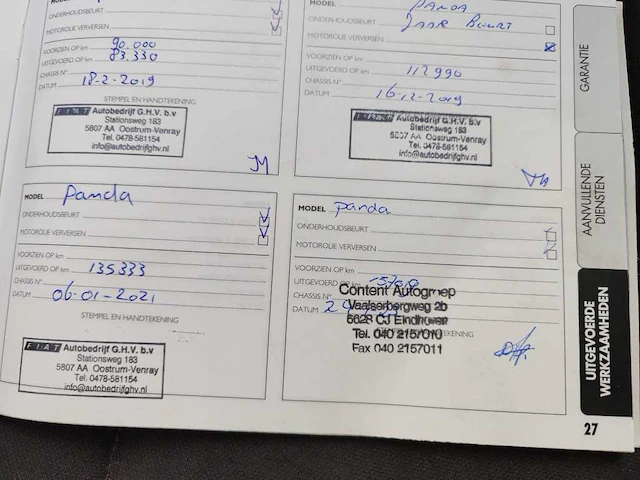 ONDERHOUDSBEURT
MOTOROLIE VERVERSEN
VOORZIEN OP km 90.000
UITGEVOERD OP km 83.330
CHASSIS N°
DATUM 18-2-2019
STEMPEL EN HANDTEKENING
FIAT Autobedrijf G.H.V. b.v
Stationsweg 183
5807 AA Oostrum-Venray
Tel. 0478-581154
info@autobedrijfghv.nl
MODEL PANDA
ONDERHOUDSBEURT JAAR BEURT
MOTOROLIE VERVERSEN
VOORZIEN OP km
UITGEVOERD OP km 112990
CHASSIS N°
DATUM 16-12-2019
STEMPEL EN HANDTEKENING
Autobedrijf G.H.V. b.v
Stationsweg 183
5807 AA Oostrum-Venray
Tel. 0478-581154
info@autobedrijfghv.nl
MODEL Panda
ONDERHOUDSBEURT
MOTOROLIE VERVERSEN
VOORZIEN OP km
UITGEVOERD OP km 135333
CHASSIS N°
DATUM 06-01-2021
STEMPEL EN HANDTEKENING
FIAT Autobedrijf G.H.V. b.v
Stationsweg 183
5807 AA Oostrum-Venray
Tel. 0478-581154
info@autobedrijfghv.nl
MODEL panda
ONDERHOUDSBEURT
MOTOROLIE VERVERSEN
VOORZIEN OP km
UITGEVOERD OP km
CHASSIS N°
DATUM
Content Autogroep
Vaalserbergweg 2b
5628 CJ Eindhoven
Tel. 040 2157010
Fax 040 2157011
GARANTIE
AANVULLENDE
DIENSTEN
UITGEVOERDE
WERKZAAMHEDEN
27